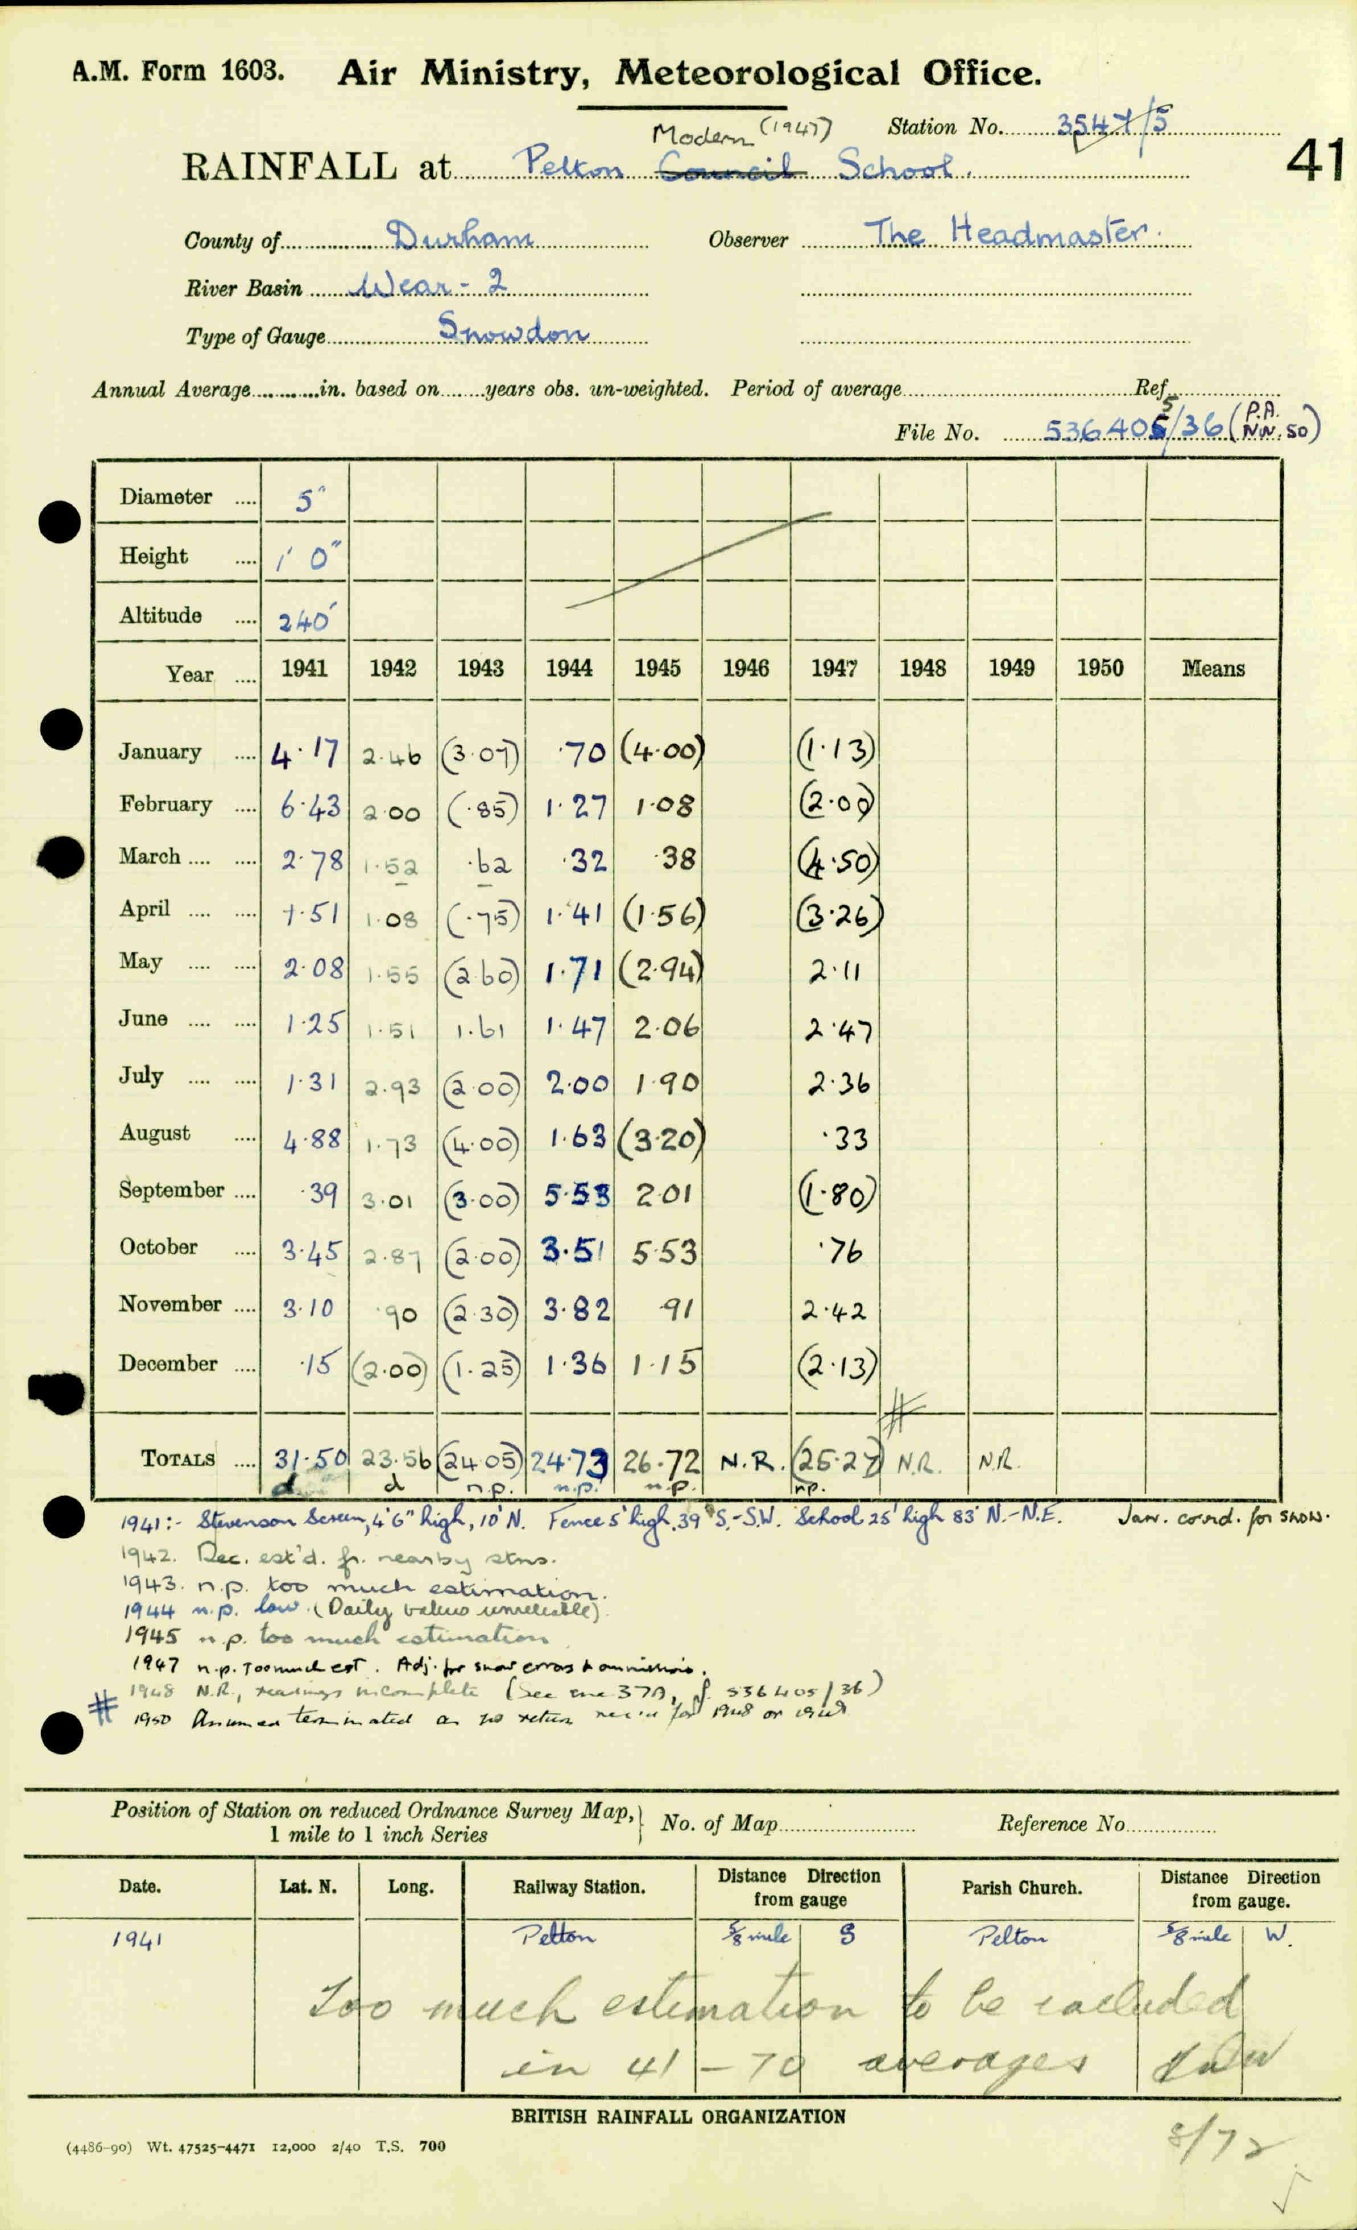 A.M. Form 1603. Air Ministry, Meteorological Office.
Station No. 3547/5
41
Modern (1947)
RAINFALL at Pelton Council School.
County of Durham Observer The Headmaster.
River Basin Wear - 2
Type of Gauge Snowdon
Annual Average in. based on years obs. un-weighted. Period of average Ref.
File No. 536405/36 (P.A. NW. 50)
Diameter 5"
Height 1' 0"
Altitude 240'
Year 1941 1942 1943 1944 1945 1946 1947 1948 1949 1950 Means
January 4.17 2.46 (3.07) .70 (4.00) (1.13)
February 6.43 2.00 (.85) 1.27 1.08 (2.00)
March 2.78 1.52 .62 .32 .38 (4.50)
April 1.51 1.08 (.75) 1.41 (1.56) (3.26)
May 2.08 1.55 (2.60) 1.71 (2.94) 2.11
June 1.25 1.51 1.61 1.47 2.06 2.47
July 1.31 2.93 (2.00) 2.00 1.90 2.36
August 4.88 1.73 (4.00) 1.63 (3.20) .33
September .39 3.01 (3.00) 5.53 2.01 (1.80)
October 3.45 2.87 (2.00) 3.51 5.53 .76
November 3.10 .90 (2.30) 3.82 .91 2.42
December .15 (2.00) (1.25) 1.36 1.15 (2.13)
#
TOTALS 31.50 23.56 (24.05) 24.73 26.72 N.R. (25.27) N.R. N.R.
d d n.p. n.p. n.p. n.p.
1941:- Stevenson Screen, 4'6" high, 10' N. Fence 5' high, 39' S.-S.W. School 25' high 83' N.-N.E. Jan. corrd. for snow.
1942. Dec. est'd. fr. nearby stns.
1943. n.p. too much estimation.
1944 n.p. low. (Daily values unreliable).
1945 n.p. too much estimation
1947 n.p. Too much est. Adj. for snow errors & ommissions.
1948 N.R., readings incomplete (See enc 37A, f. 536405/36)
# 1950 Assumed terminated as no return rec'd for 1948 or 1949
Position of Station on reduced Ordnance Survey Map, 1 mile to 1 inch Series No. of Map Reference No.
Date. Lat. N. Long. Railway Station. Distance Direction from gauge Parish Church. Distance Direction from gauge.
1941 Pelton 5/8 mile S Pelton 5/8 mile W.
Too much estimation to be included
in 41-70 averages
BRITISH RAINFALL ORGANIZATION
(4486-90) Wt. 47525-4471 12,000 2/40 T.S. 700
8/72